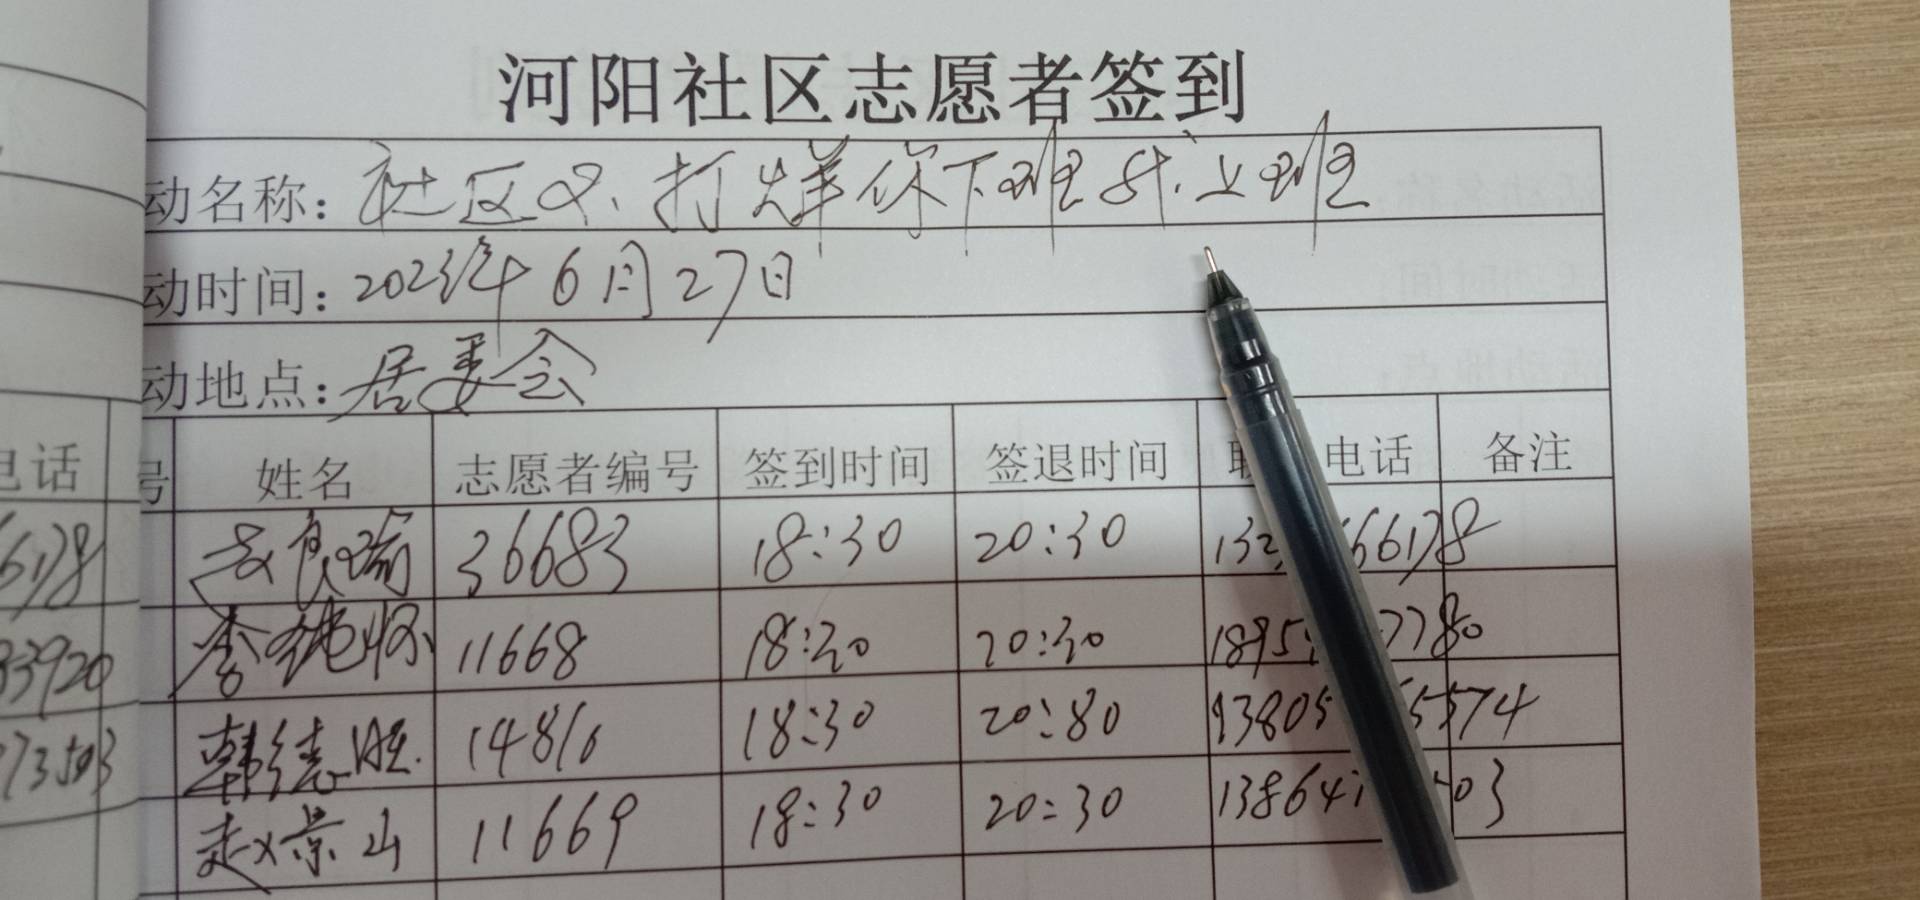 河阳社区志愿者签到
动名称：社区不打烊你下班我上班
动时间：2023年6月27日
动地点：居委会
电话 号 姓名 志愿者编号 签到时间 签退时间 联 电话 备注
66178 良瑜 36683 18:30 20:30 132 66178
83920 李纯怀 11668 18:30 20:30 1895 7780
73503 韩德胜 14816 18:30 20:80 13805 5574
赵景山 11669 18:30 20:30 138641 03